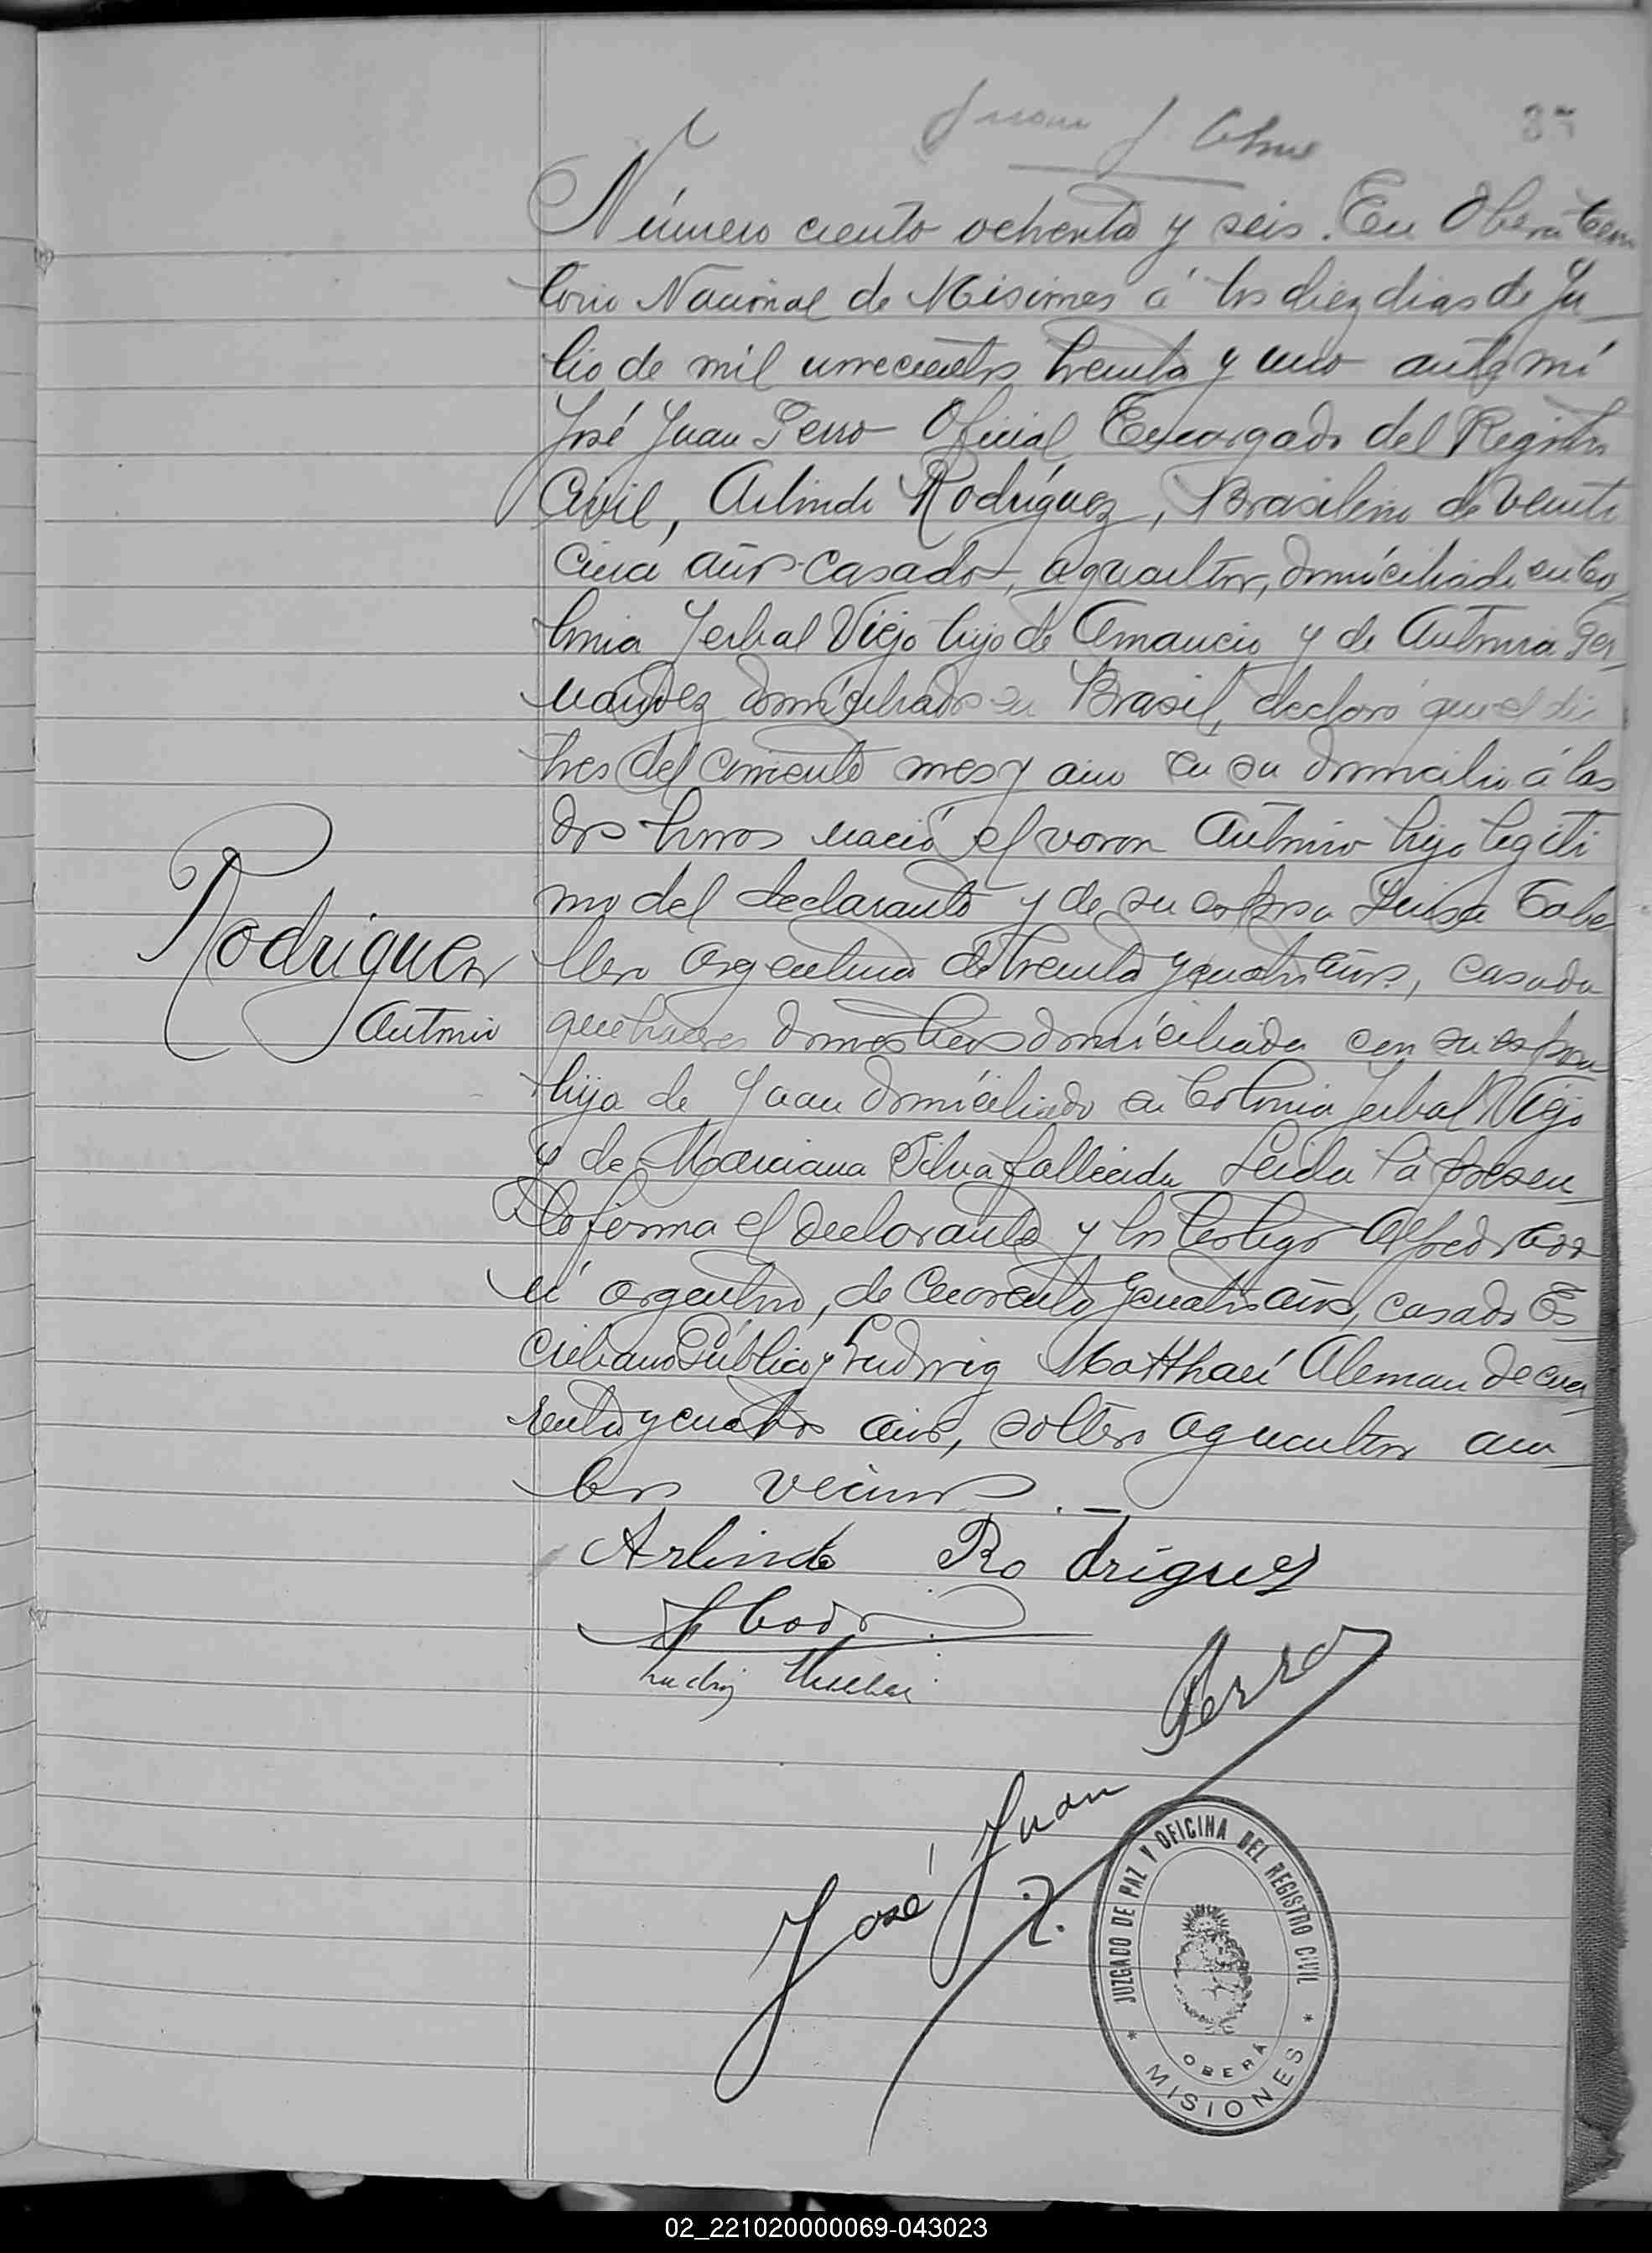 37
Número ciento ochenta y seis. En Oberá Terri
torio Nacional de Misiones á los diez dias de Ju_
lio de mil novecientos treinta y uno ante mí
José Juan Perro Oficial Encargado del Registro
Civil, Arlindo Rodríguez, Brasilero de veinti
cinco años casado, agricultor, domiciliado en Co_
lonia Yerbal Viejo hijo de Amancio y de Antonia Fer_
nandez domiciliados en Brasil, declaró que el dia
tres del corriente mes y año en su domicilio á las
dos horas nació el varon Antonio hijo legiti
mo del declarante y de su esposa Luisa Cabe
llero argentina de treinta y cuatro años, casada
quehaceres domesticos domiciliada con su esposo
hija de Juan domiciliado en Colonia Yerbal Viejo
y de Marciana Silva fallecida Leida la presen_
te la firma el declarante y los testigos Alfredo
argentino, de cuarenta y cuatro años, casado Es_
cribano Público y Ludwig Matthaei Aleman de cua_
renta y cuatro años, soltero agricultor am_
bos vecinos.—
Rodriguez
Antonio
Arlindo Rodriguez
Ludwig
José Juan Perro
JUZGADO DE PAZ Y OFICINA DEL REGISTRO CIVIL
* MISIONES *
OBERÁ
02_221020000069-043023